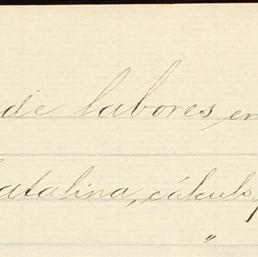 de labores, en
atalina, cálculo,
"